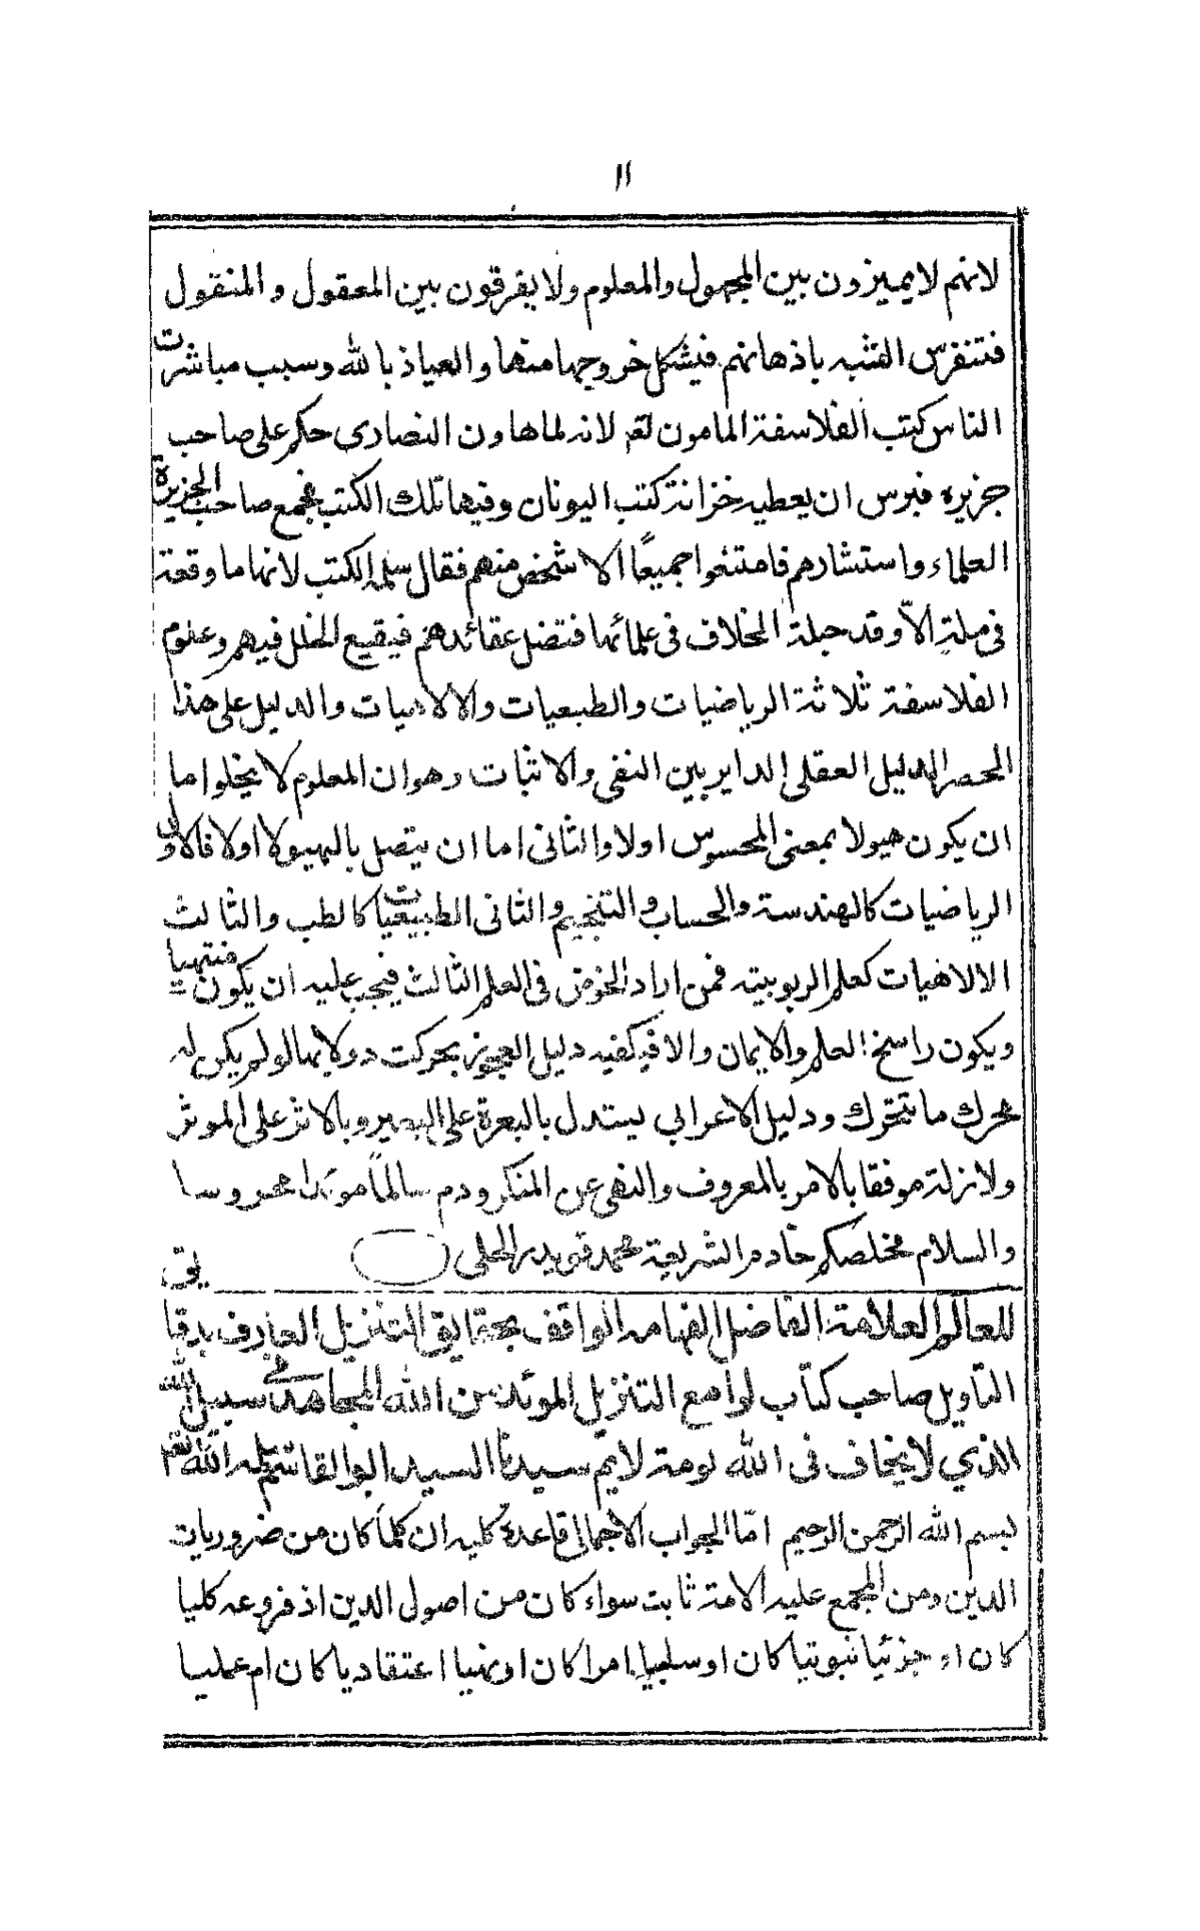 ١١
لانهم لا يميزون بين المجهول والمعلوم ولا يفرقون بين المعقول و المنقول
فتنفرس الشبه باذهانهم فيشكل خروجها منها والعياذ بالله وسبب مباشرت
الناس كتب الفلاسفة المامون لانه لما هاون النصارى حكم على صاحب
جزيره قبرس ان يعطيه خزانة كتب اليونان وفيها تلك الكتب فجمع صاحب الجزيرة
العلماء واستشارهم فامتنعوا جميعًا الا شخص منهم فقال سلمه الكتب لانها ما وقعة
فى ملةٍ الاّ وقد جبلة الخلاف فى علمائها فتضل عقائدهم فيقيع الخلل فيهم وعلوم
الفلاسفة ثلاثة الرياضيات والطبعيات والالاهيات والدليل على هذا
الحصر الدليل العقلى الداير بين النفى والاثبات وهو ان المعلوم لا يخلوا ما
ان يكون هيولا بمعنى المحسوس اولا والثانى اما ان يتصل بالهيولا اولا فالاول
الرياضيات كالهندسة والحساب والتنجيم والثانى الطبيعيات كالطب والثالث
الالاهيات كعلم الربوبيته فمن اراد الخوض فى العلم الثالث فيجب عليه ان يكون منتهيا
ويكون راسخ العلم والايمان والا فيكفيه دليل العجوز بحركت دولابها لو لم يكن له
محرك ما تحرك ودليل الاعرابي يستدل بالبعرة على البعير وبالاثر على الموثر
ولا زلة موفقا بالامر بالمعروف والنهى عن المنكر ودم سالمًا مويدا محروسا
والسلام مخلصكم خادم الشريعة محمد الحلى
للعالم العلامة الفاضل الفهامه الواقف بحقايق التنزيل العارف بدقايق
التآويل صاحب كتآب لوامع التنزيل الموئد من الله المجاهد فى سبيل الله
الذي لا يخاف فى الله لومة لايم سيدنا السيد ابو القاسم سلمه الله تعم
بسم الله الرحمن الرحيم امّا الجواب الاجمالى قاعدة كليه ان كلما كان من ضروريات
الدين ومن المجمع عليه الامة ثابت سواء كان من اصول الدين اذ فروعه كليا
كان او جزئيا ثبوتيا كان او سلبيا امرا كان او نهيا اعتقاديا كان ام عمليا